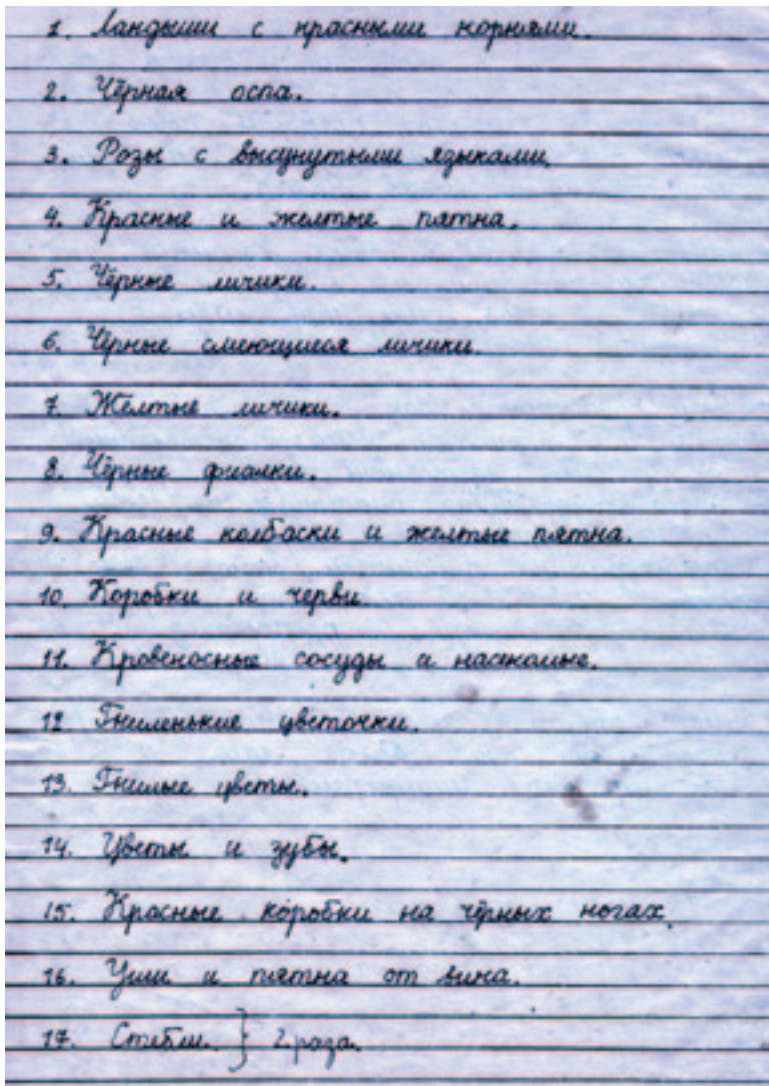 1. Ландыши с красными корнями.
2. Чёрная оспа.
3. Розы с высунутыми языками.
4. Красные и желтые пятна.
5. Чёрные личики.
6. Чёрные смеющиеся личики.
7. Жёлтые личики.
8. Чёрные фиалки.
9. Красные колбаски и желтые пятна.
10. Коробки и черви.
11. Кровеносные сосуды и насекомые.
12. Гниленькие цветочки.
13. Гнилые цветы.
14. Цветы и зубы.
15. Красные коробки на чёрных ногах.
16. Уши и пятна от вина.
17. Стебли. } 2 раза.